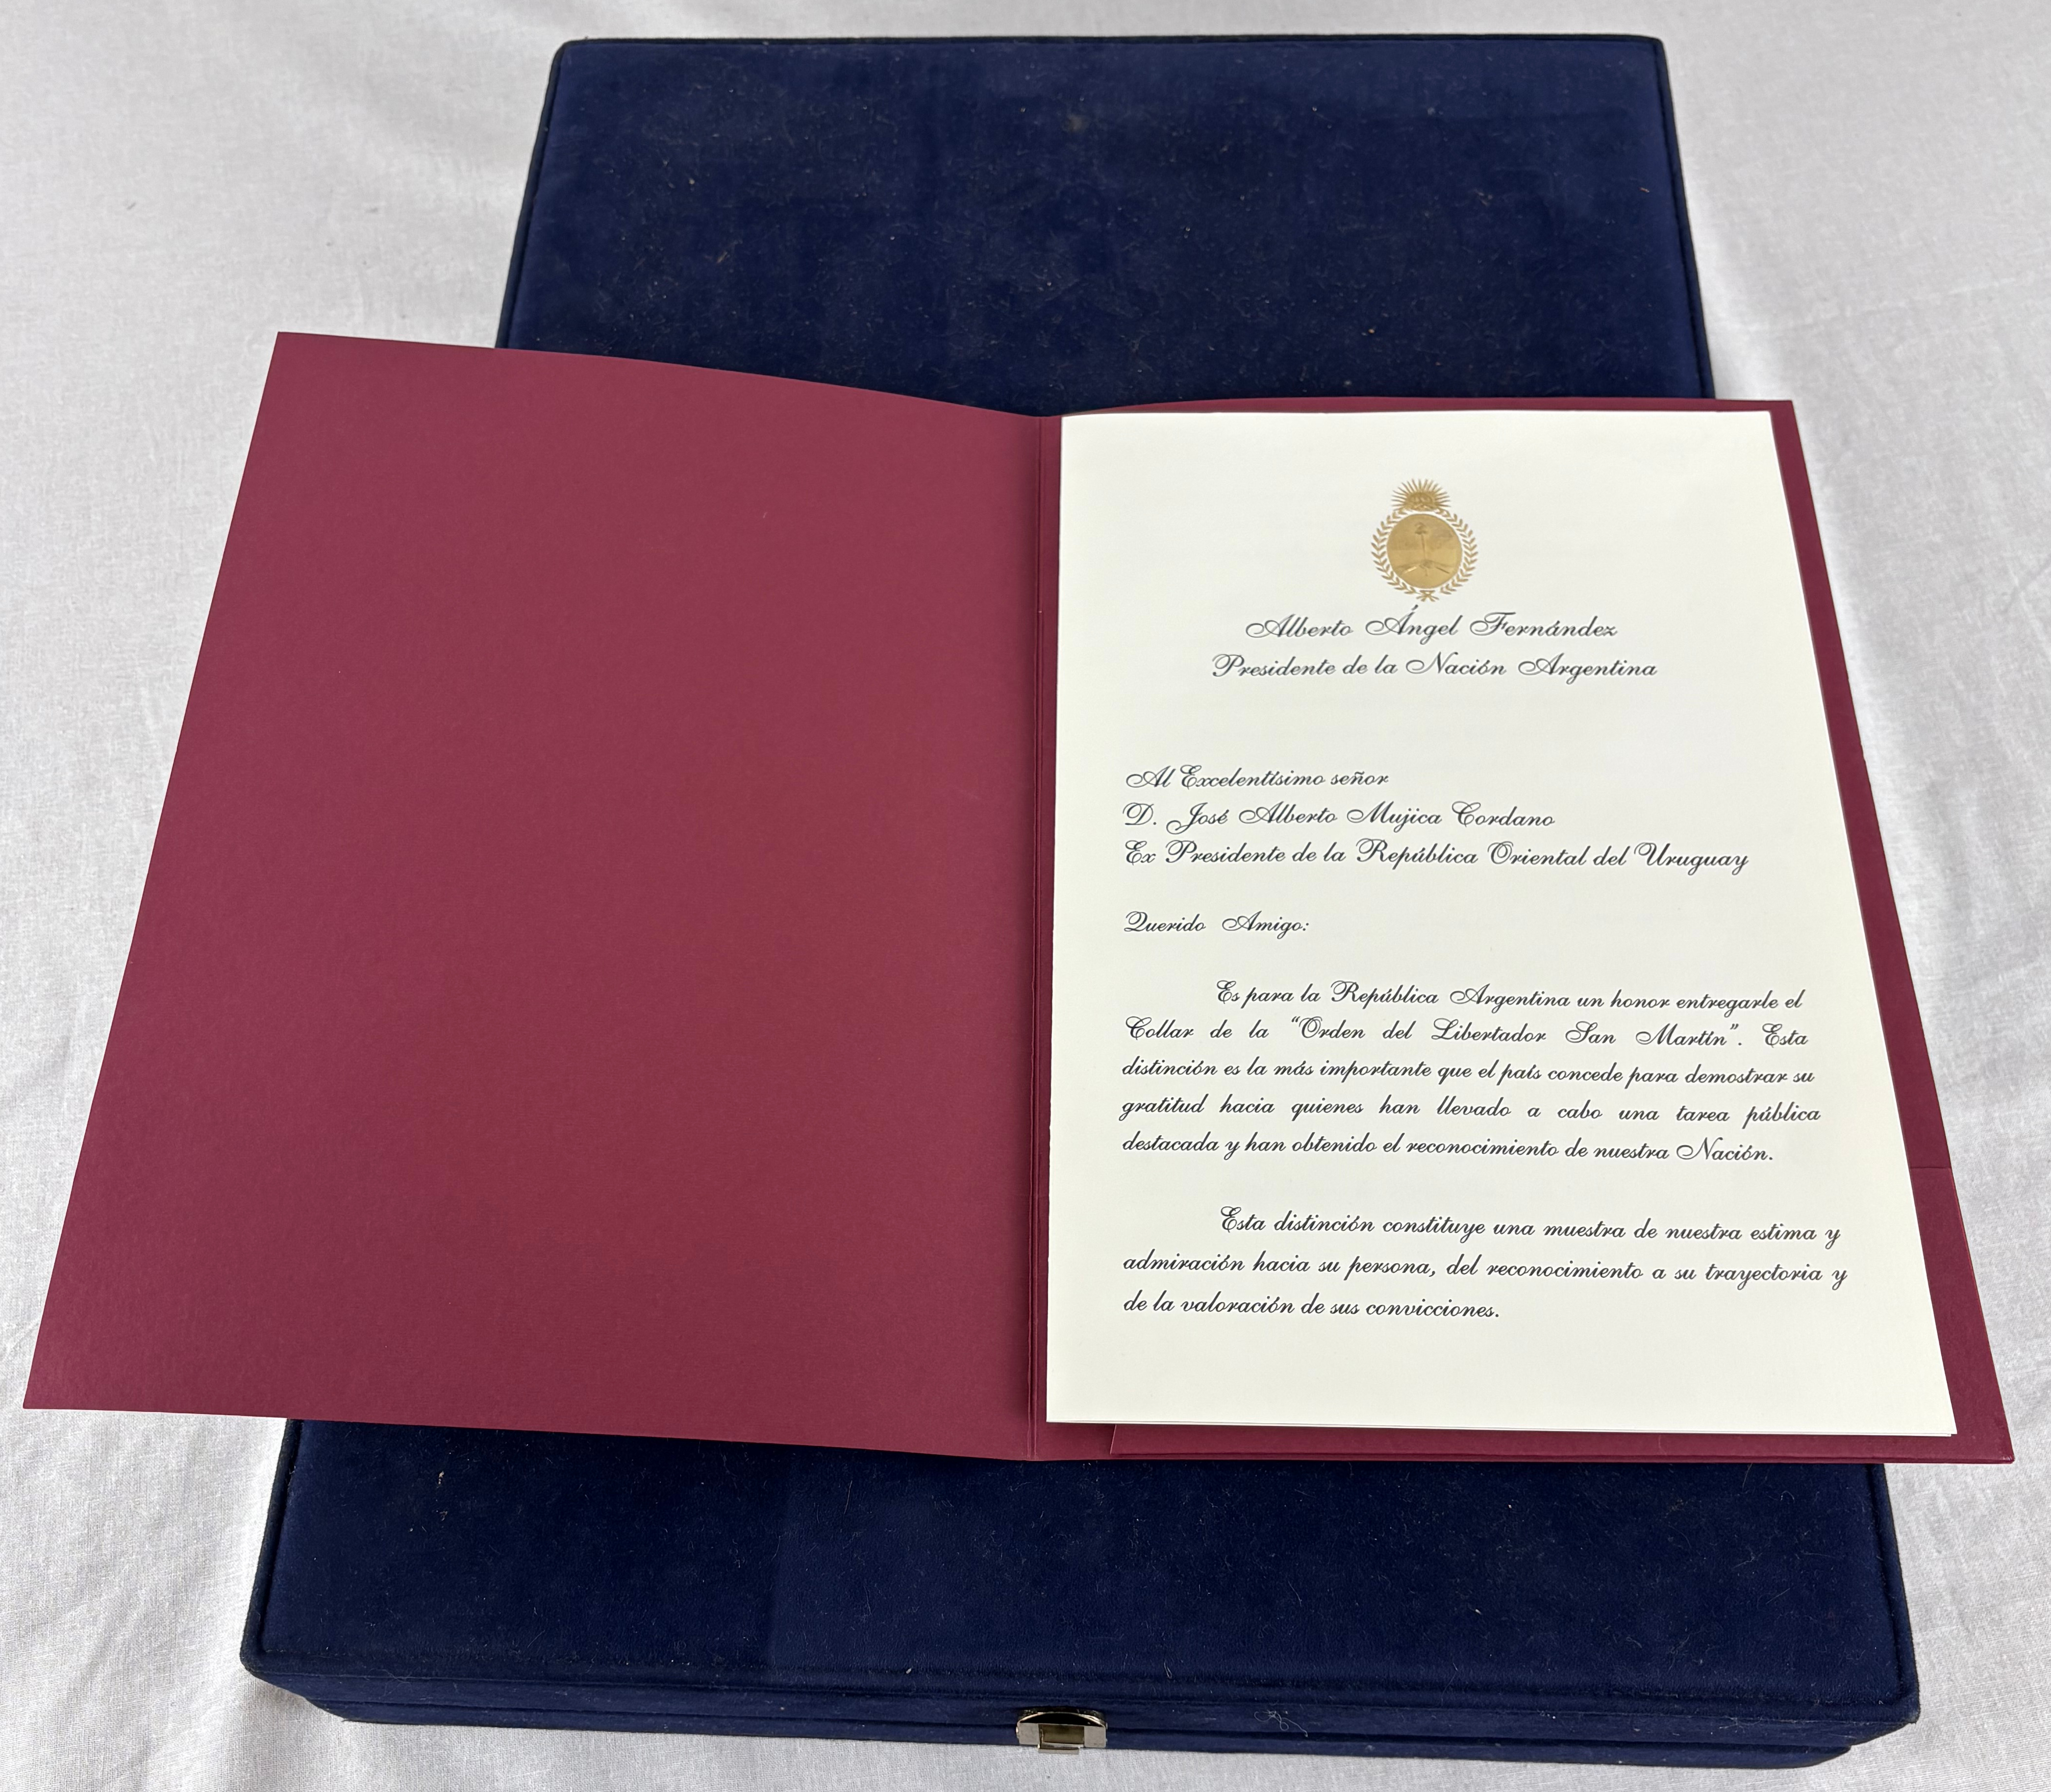 Alberto Ángel Fernández
Presidente de la Nación Argentina
Al Excelentísimo señor
D. José Alberto Mujica Cordano
Ex Presidente de la República Oriental del Uruguay
Querido Amigo:
Es para la República Argentina un honor entregarle el
Collar de la “Orden del Libertador San Martín”. Esta
distinción es la más importante que el país concede para demostrar su
gratitud hacia quienes han llevado a cabo una tarea pública
destacada y han obtenido el reconocimiento de nuestra Nación.
Esta distinción constituye una muestra de nuestra estima y
admiración hacia su persona, del reconocimiento a su trayectoria y
de la valoración de sus convicciones.